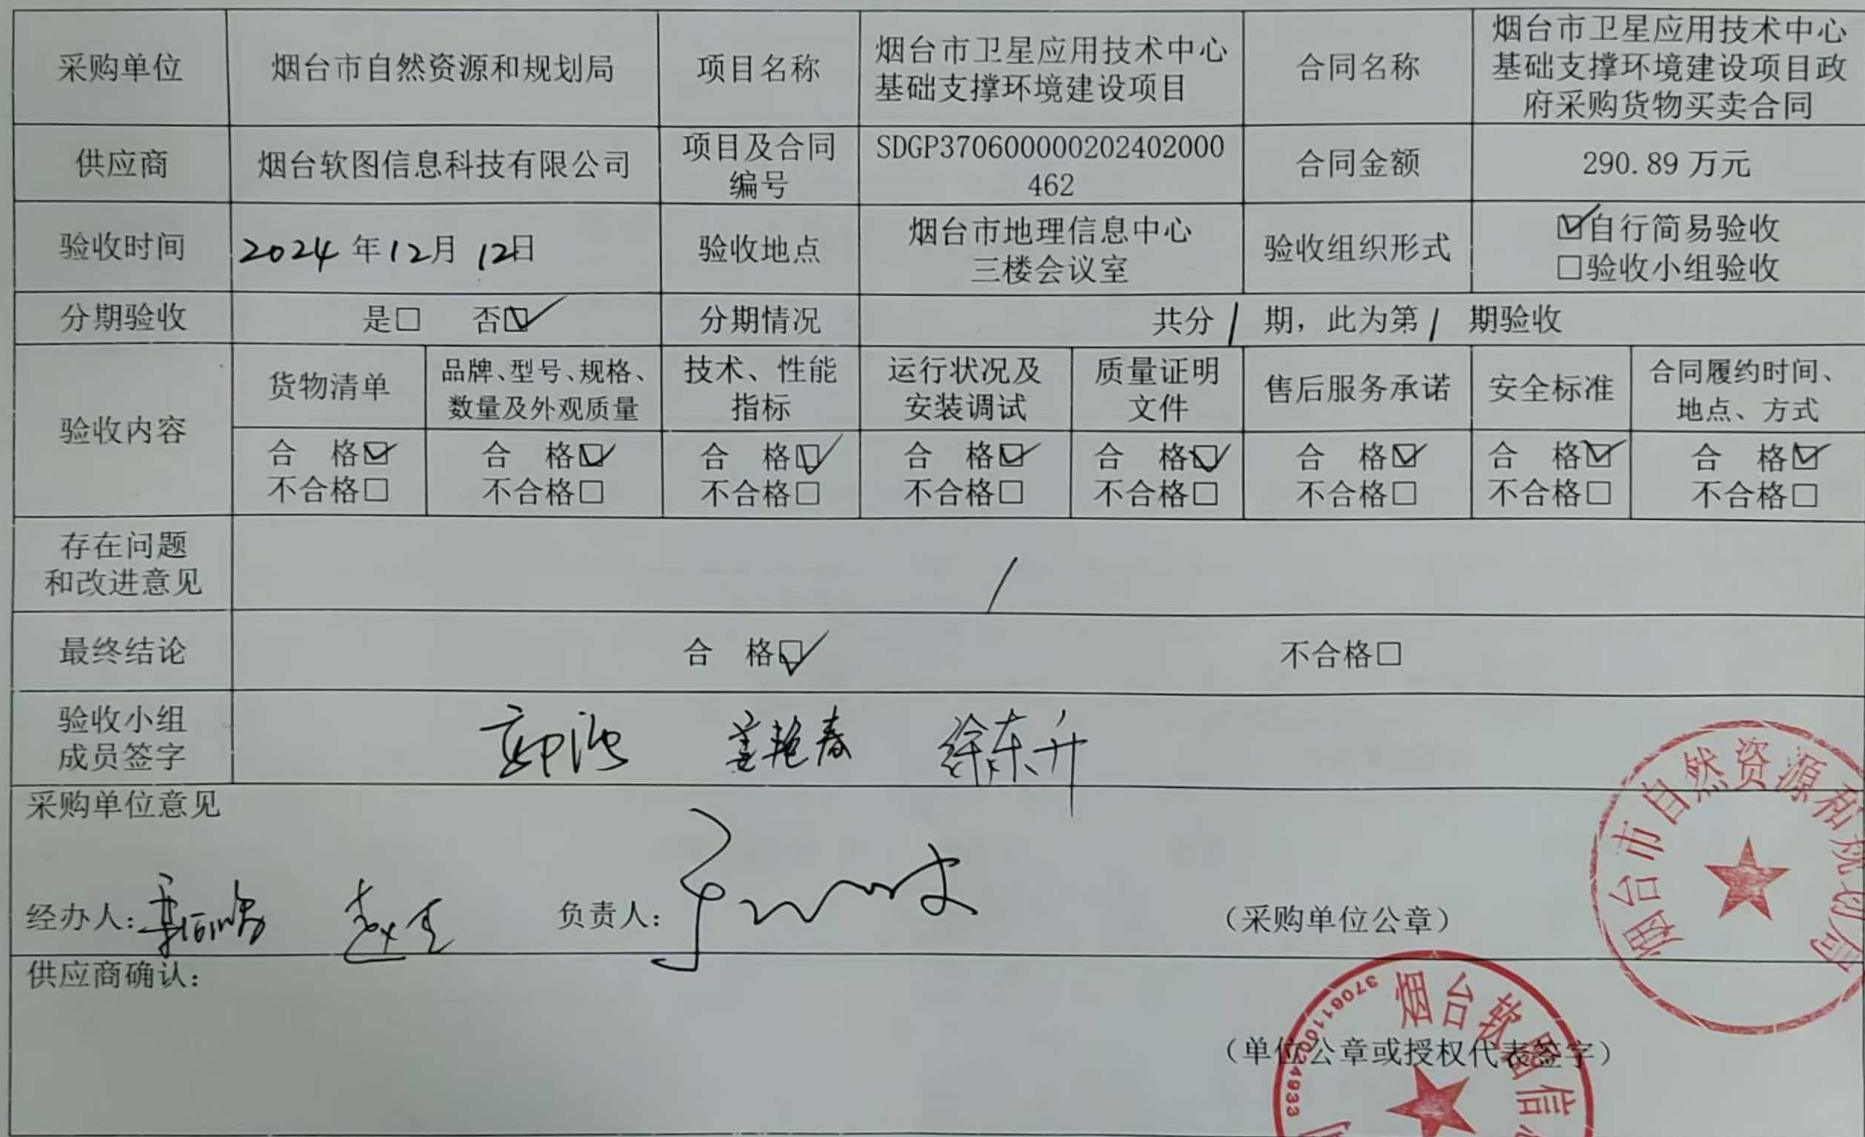 采购单位 烟台市自然资源和规划局 项目名称 烟台市卫星应用技术中心
基础支撑环境建设项目 合同名称 烟台市卫星应用技术中心
基础支撑环境建设项目政
府采购货物买卖合同
供应商 烟台软图信息科技有限公司 项目及合同
编号 SDGP370600000202402000
462 合同金额 290.89 万元
验收时间 2024 年 12 月 12 日 验收地点 烟台市地理信息中心
三楼会议室 验收组织形式 ☑自行简易验收
□验收小组验收
分期验收 是□ 否☑ 分期情况 共分 1 期，此为第 1 期验收
验收内容 货物清单 品牌、型号、规格、
数量及外观质量 技术、性能
指标 运行状况及
安装调试 质量证明
文件 售后服务承诺 安全标准 合同履约时间、
地点、方式
合 格☑ 合 格☑ 合 格☑ 合 格☑ 合 格☑ 合 格☑ 合 格☑ 合 格☑
不合格□ 不合格□ 不合格□ 不合格□ 不合格□ 不合格□ 不合格□ 不合格□
存在问题
和改进意见 /
最终结论 合 格☑ 不合格□
验收小组
成员签字 徐东升
采购单位意见
经办人： 负责人： （采购单位公章）
烟台市自然资源和规划局
供应商确认：
（单位公章或授权代表签字）
烟台软图信
3706110024933